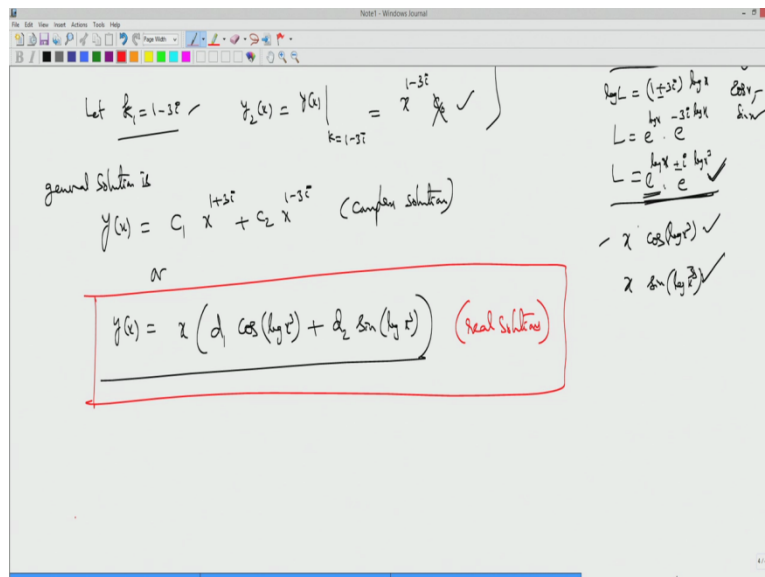 Note1 - Windows Journal
File Edit View Insert Actions Tools Help
Page Width
B I
Let k₁ = 1-3i y₂(x) = y(x)|ₖ₌₁₋₃ᵢ = x^(1-3i)
general solution is
y(x) = c₁ x^(1+3i) + c₂ x^(1-3i) (complex solution)
or
y(x) = x (d₁ cos(log x³) + d₂ sin(log x³)) (real solution)
log L = (1±3i) log x
cos x,
sin x
L = e^(log x) . e^(-3i log x)
L = e^(log x) . e^(±i log x³)
x cos(log x³)
x sin(log x³)